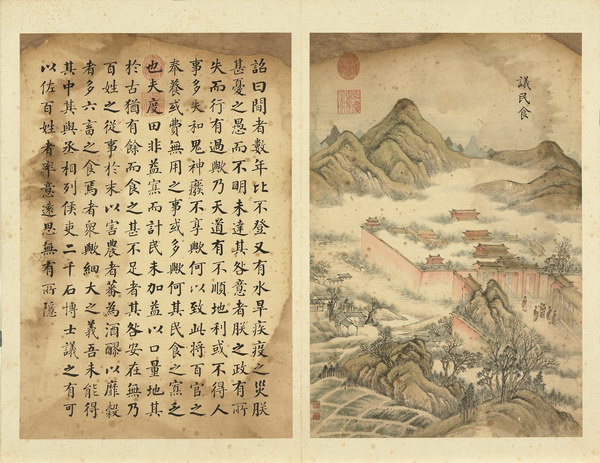 議民食
詔曰間者數年比不登又有水旱疾疫之災朕
甚憂之愚而不明未達其咎意者朕之政有所
失而行有過歟乃天道有不順地利或不得人
事多失和鬼神癈不享歟何以致此將百官之
奉養或費無用之事或多歟何其民食之寡乏
也夫度田非益寡而計民未加益以口量地其
於古猶有餘而食之甚不足者其咎安在無乃
百姓之從事於末以害農者蕃為酒醪以靡穀
者多六畜之食焉者眾歟細大之義吾未能得
其中其與丞相列侯吏二千石博士議之有可
以佐百姓者率意遠思無有所隱